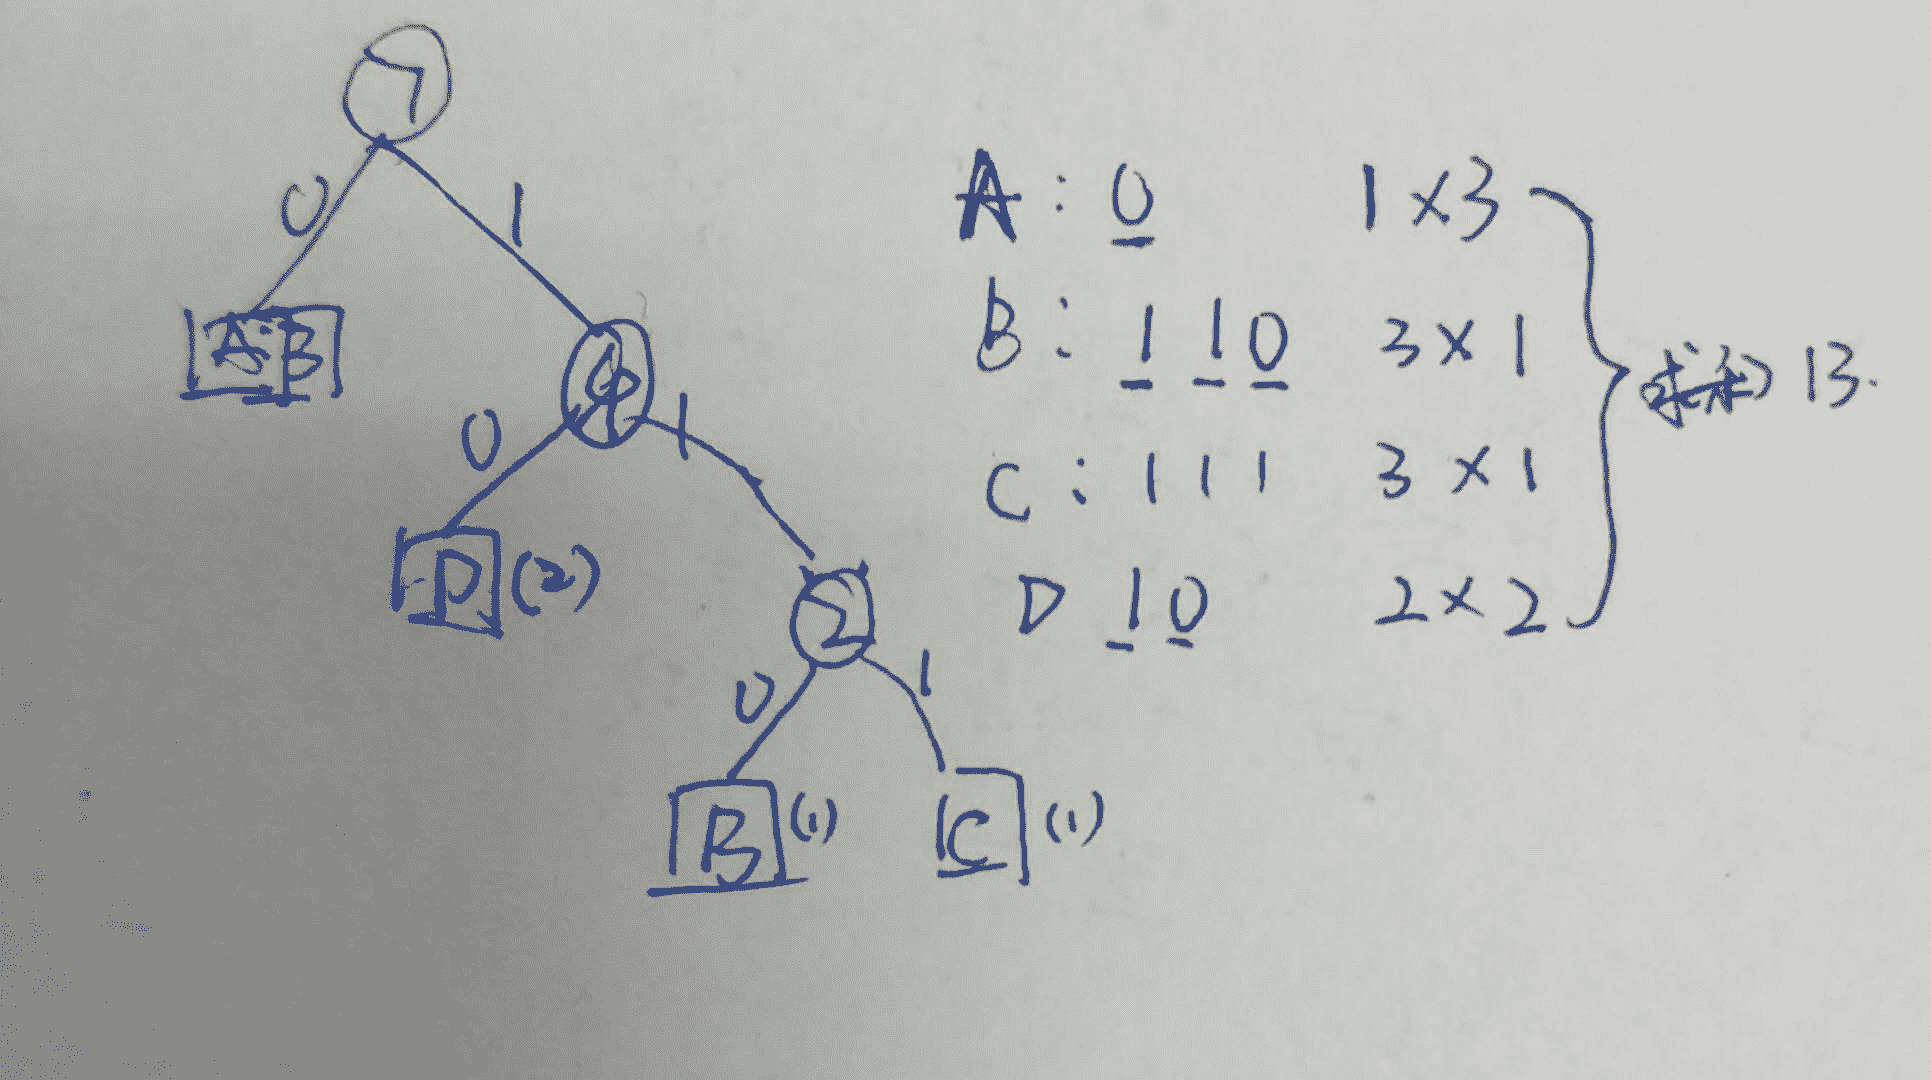 7
0 1
A:3
4
0 1
D (2)
2
0 1
B (1) C (1)
A : 0 1 × 3
B : 1 1 0 3 × 1
C : 1 1 1 3 × 1
D 1 0 2 × 2
求和 13.